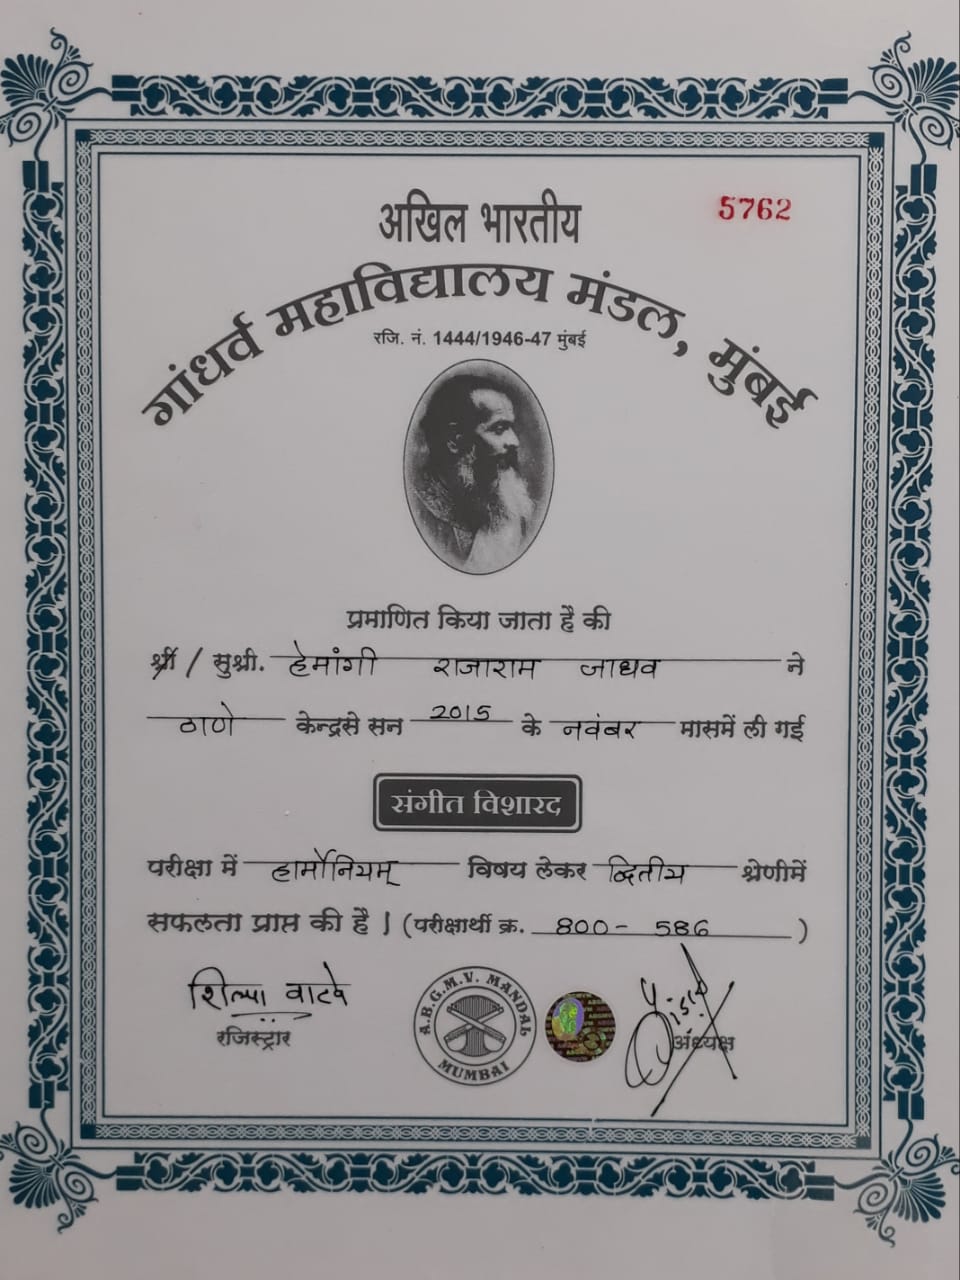 5762
अखिल भारतीय
गांधर्व महाविद्यालय मंडल, मुंबई
रजि. नं. 1444/1946-47 मुंबई
प्रमाणित किया जाता है की
श्री / सुश्री. हेमांगी राजाराम जाधव ने
ठाणे केन्द्रसे सन 2015 के नवंबर मासमें ली गई
संगीत विशारद
परीक्षा में हार्मोनियम् विषय लेकर द्वितीय श्रेणीमें
सफलता प्राप्त की है । (परीक्षार्थी क्र. 800 - 586 )
शिल्पा वाटवे
रजिस्ट्रार
A.B.G.M.V. MANDAL
MUMBAI
अध्यक्ष